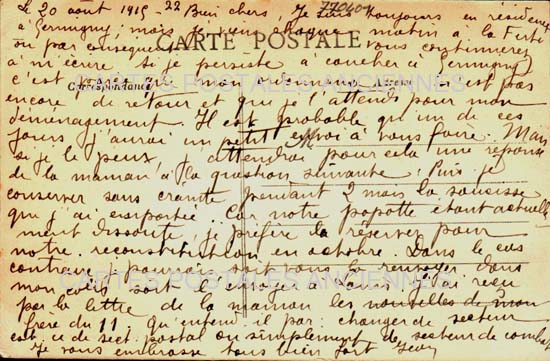 Le 20 août 1915 - 22 Bien chers, Je suis toujours en résidence
à Germigny; mais je viens chaque matin à la Ferté
CARTE POSTALE
où par conséquent vous continuerez
à m'écrire. Si je persiste à coucher à Germigny
c'est que mon ordonnance n'est pas
Correspondance
encore de retour et que je l'attends pour mon
déménagement. Il est probable qu'un de ces
jours j'aurai un petit envoi à vous faire. Mais
si je le peux, j'attendrai pour cela une réponse
de la maman à la question suivante : Puis-je
conserver sans crainte pendant 2 mois la saucisse
que j'ai emportée. Car notre popotte étant actuelle
ment dissoute, je préfère la réserver pour
notre reconstitution en octobre. Dans le cas
contraire je pourrais soit vous la renvoyer dans
mon colis soit l'envoyer à Louis. J'ai reçu
par la lettre de la maman les nouvelles de mon
frère du 11; qu'entend-il par changer de secteur
est-ce de sect. postal ou simplement de secteur de combat
Je vous embrasse tous bien fort
CARTES POSTALES ANCIENNES
CARTES POSTALES ANCIENNES